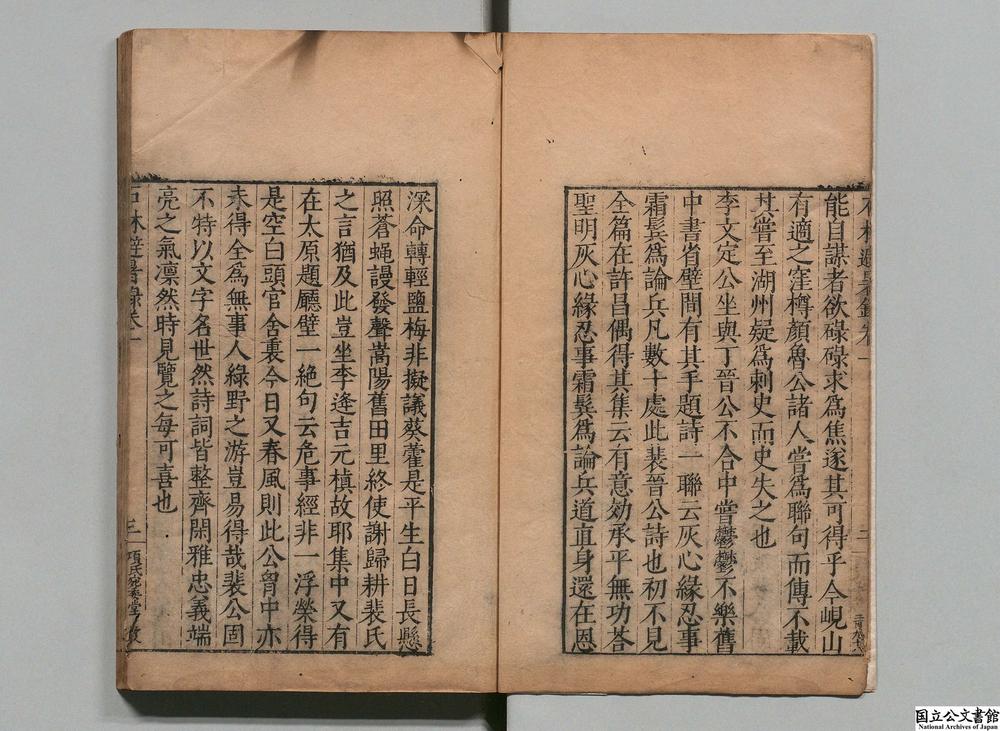 能自謀者欲碌碌求爲焦遂其可得乎今峴山
有適之窪樽顔魯公諸人嘗爲聯句而傳不載
其嘗至湖州疑爲刺史而史失之也
李文定公坐與丁晉公不合中嘗鬱鬱不樂舊
中書省壁間有其手題詩一聯云灰心緣忍事
霜鬂爲論兵凡數十處此裴晉公詩也初不見
全篇在許昌偶得其集云有意効承平無功荅
聖明灰心緣忍事霜鬂爲論兵道直身還在恩
深命轉輕鹽梅非擬議葵藿是平生白日長懸
照蒼蝿謾發聲嵩陽舊田里終使謝歸耕裴氏
之言猶及此豈坐李逢吉元槙故耶集中又有
在太原題廳壁一絕句云危事經非一浮榮得
是空白頭官舍裏今日又春風則此公胷中亦
未得全爲無事人緑野之游豈易得哉裴公固
不特以文字名世然詩詞皆整齊閑雅忠義端
亮之氣凛然時見覽之每可喜也
石林避暑錄卷一
三
項氏宛委堂校
国立公文書館
National Archives of Japan